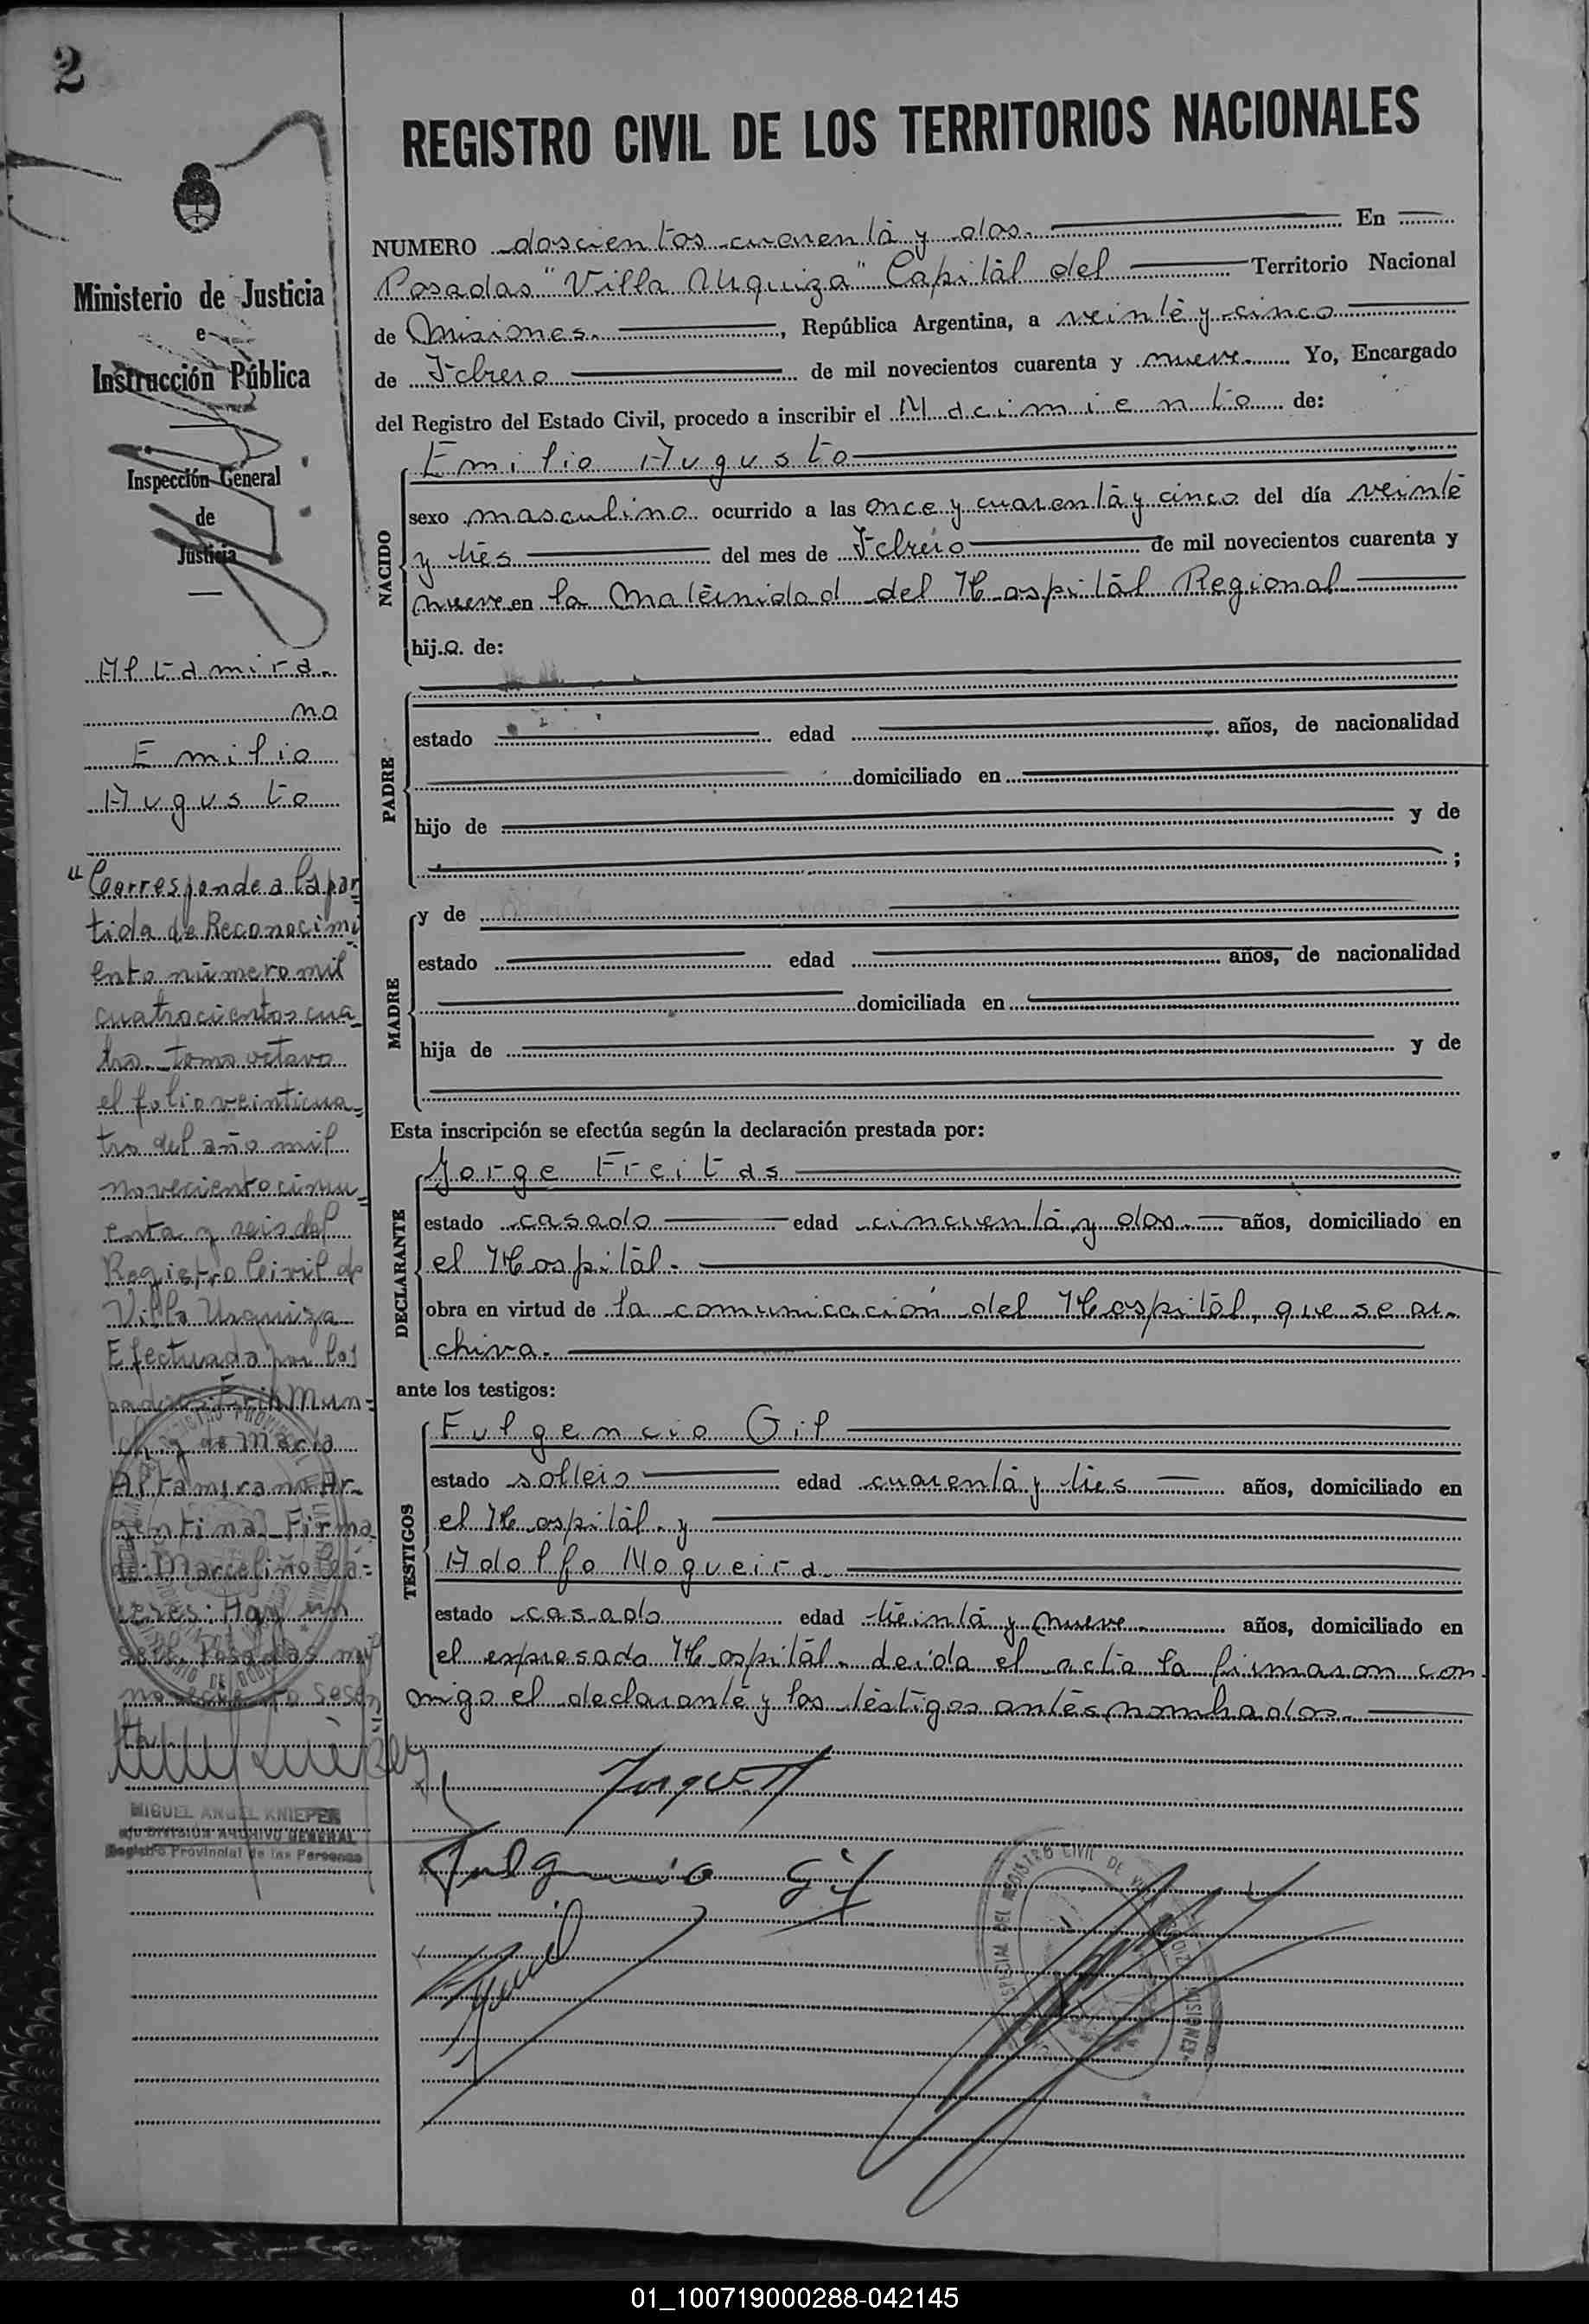 2
REGISTRO CIVIL DE LOS TERRITORIOS NACIONALES
Ministerio de Justicia
e
Instrucción Pública
Inspección General
de
Justicia
Altamira-
no
Emilio
Augusto
"Corresponde a la par
tida de Reconocimi
ento número mil
cuatrocientos cua
tro. Tomo octavo
el folio veinticua-
tro del año mil
noveciento cincu
enta y seis del
Registro Civil de
Villa Urquiza
Efectuada por los
padres: Erih Mun=
ch y de María
Altamirano Ar-
gentina. Firma
do: Marcelino Cá=
ceres: Hay un
sello. Posadas mil
novecientos sesen
ta
MIGUEL ANGEL KNIEPER
A/C DIVISION ARCHIVO GENERAL
Registro Provincial de las Personas
NUMERO doscientos cuarenta y dos. En
Posadas "Villa Urquiza" Capital del Territorio Nacional
de Misiones. , República Argentina, a veinte y cinco
de Febrero de mil novecientos cuarenta y nueve. Yo, Encargado
del Registro del Estado Civil, procedo a inscribir el Nacimiento de:
NACIDO
Emilio Augusto
sexo masculino ocurrido a las once y cuarenta y cinco del día veinte
y tres del mes de Febrero de mil novecientos cuarenta y
nueve en la Maternidad del Hospital Regional
hij.o. de:
PADRE
estado edad años, de nacionalidad
domiciliado en
hijo de y de
;
MADRE
y de
estado edad años, de nacionalidad
domiciliada en
hija de y de
Esta inscripción se efectúa según la declaración prestada por:
DECLARANTE
Jorge Freitas
estado casado edad cincuenta y dos. años, domiciliado en
el Hospital.
obra en virtud de la comunicación del Hospital, que se ar-
chiva.
ante los testigos:
TESTIGOS
Fulgencio Gil
estado soltero edad cuarenta y tres años, domiciliado en
el Hospital y
Adolfo Nogueira
estado casado edad treinta y nueve años, domiciliado en
el expresado Hospital. Leída el acta la firmaron con-
migo el declarante y los testigos antes nombrados.
Fulgencio Gil
REGISTRO CIVIL DE
MISIONES
01_100719000288-042145